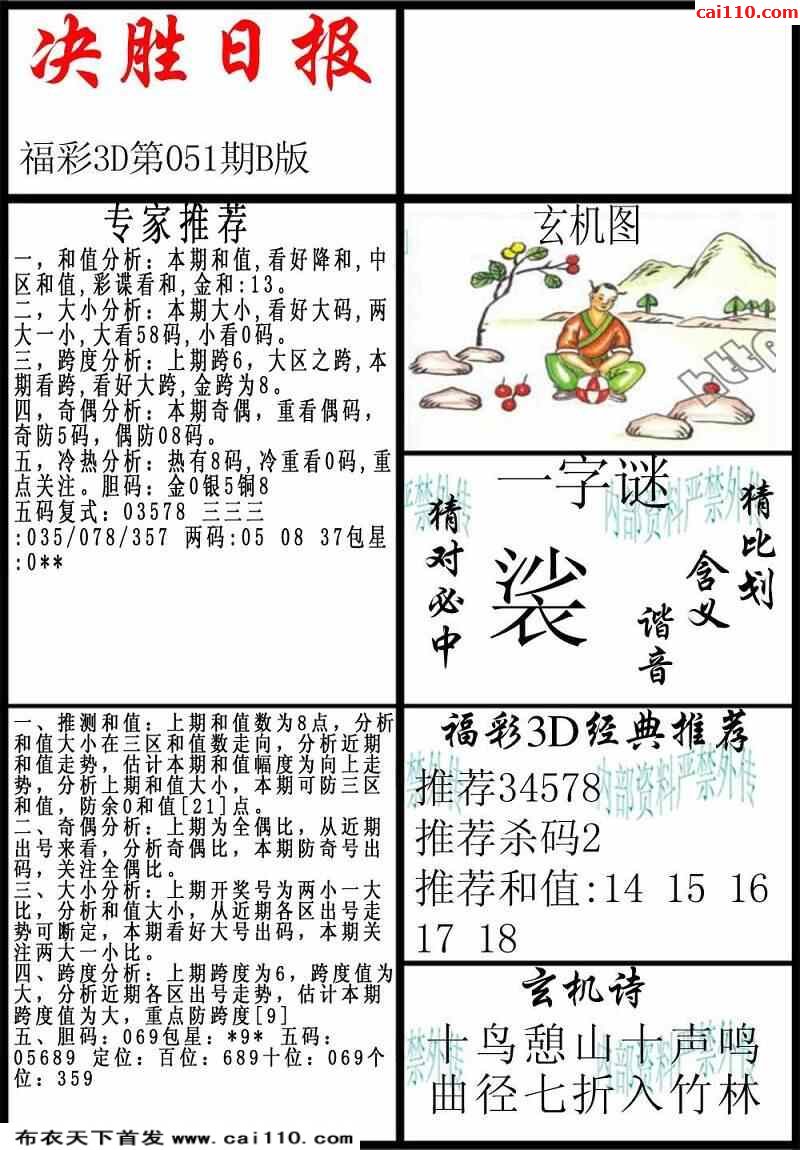 cai110.com
决胜日报
福彩3D第051期B版
专家推荐
一,和值分析:本期和值,看好降和,中
区和值,彩谍看和,金和:13。
二,大小分析:本期大小,看好大码,两
大一小,大看58码,小看0码。
三,跨度分析:上期跨6,大区之跨,本
期看跨,看好大跨,金跨为8。
四,奇偶分析:本期奇偶,重看偶码,
奇防5码,偶防08码。
五,冷热分析:热有8码,冷重看0码,重
点关注。胆码:金0银5铜8
五码复式:03578 三三三
:035/078/357 两码:05 08 37包星
:0**
玄机图
http
一字谜
猜对必中
裟
谐音
含义
猜比划
内部资料严禁外传
严禁外传
一、推测和值:上期和值数为8点,分析
和值大小在三区和值数走向,分析近期
和值走势,估计本期和值幅度为向上走
势,分析上期和值大小,本期可防三区
和值,防余0和值[21]点。
二、奇偶分析:上期为全偶比,从近期
出号来看,分析奇偶比,本期防奇号出
码,关注全偶比。
三、大小分析:上期开奖号为两小一大
比,分析和值大小,从近期各区出号走
势可断定,本期看好大号出码,本期关
注两大一小比。
四、跨度分析:上期跨度为6,跨度值为
大,分析近期各区出号走势,估计本期
跨度值为大,重点防跨度[9]
五、胆码:069包星:*9* 五码:
05689 定位:百位:689十位:069个
位:359
福彩3D经典推荐
推荐34578
推荐杀码2
推荐和值:14 15 16
17 18
内部资料严禁外传
禁外传
玄机诗
十鸟憩山十声鸣
曲径七折入竹林
内部资料严禁外传
禁外传
布衣天下首发 www.cai110.com